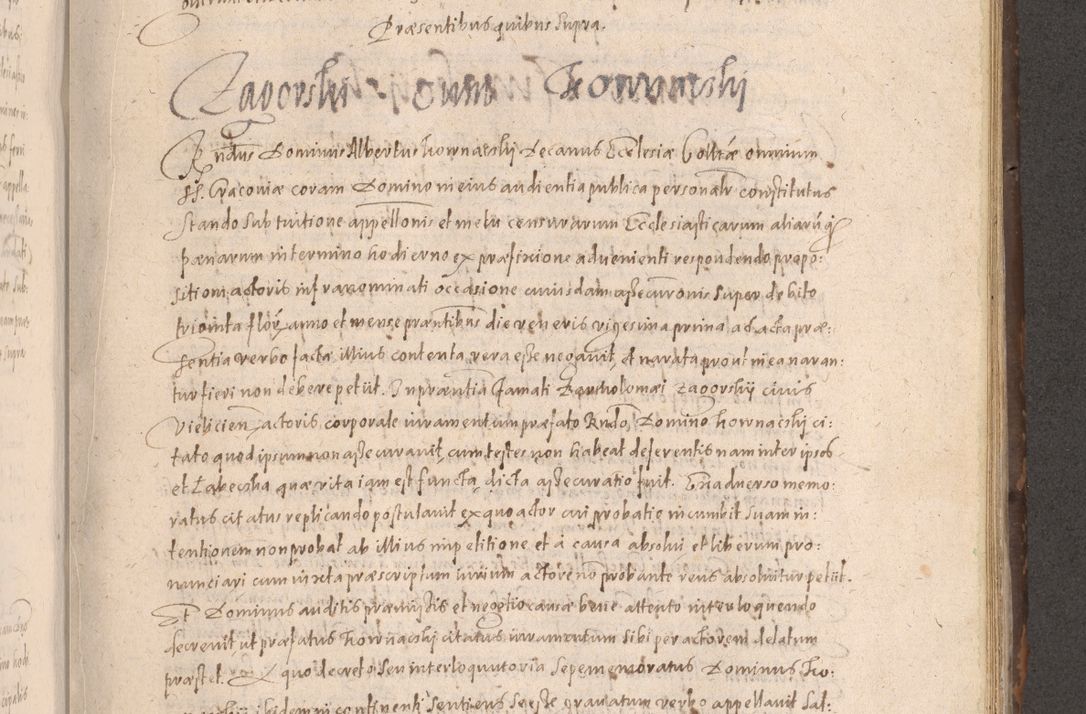 Præsentibus quibus supra.
Zagorski cum Kownacski
Rndus Dominus Albertus Kownacski Decanus Ecclesiæ Colltæ omnium
SS. Cracoviæ coram Domino in eius audientia publica personaltr constitutus
stando sub tuitione appellonis et metu censurarum Ecclesiasticarum aliarũq
pænarum in termino hodierno ex præfixione advenienti respondendo propo:
sitioni actoris infranominati occasione cuiusdam assecuronis super debito
triginta flor, anno et mense præntibus die veneris vigesima prima ad acta præ:
sentia verbo facta, illius contenta vera esse negavit, et narata prout in ea naran:
tur fieri non debere petiit. In præntia famati Bartholomæi Zagorskij civis
Vielicien, actoris corporale iuramentum præfato Rndo, Domino Kownacski ci:
tato quod ipsum non assecuravit, cum testes non habeat deferentis nam inter ipsos
et Łabecska quæ vita iam est functa, dicta assecuratio fuit. E cõadverso memo:
ratus citatus replicando postulavit ex quo actor cui probatio incumbit suam in:
tentionem non probat ab illius impetitione et à causa absolvi et liberum pro:
nunciari cum iuxta præscriptum iurium actore nõ probante reus absolvitur petiit.
Et Dominus auditis præmissis et negotio causæ bene attento interloquendo
decrevit, ut præfatus Kownacski citatus iuramentum sibi per actorem delatum
præstet. Ex quo decreto seu interloquutoria sepememoratus Dominus Ko:
wnacskij ibidem in continenti sentiens se esse gravatum verbo appellavit sal: